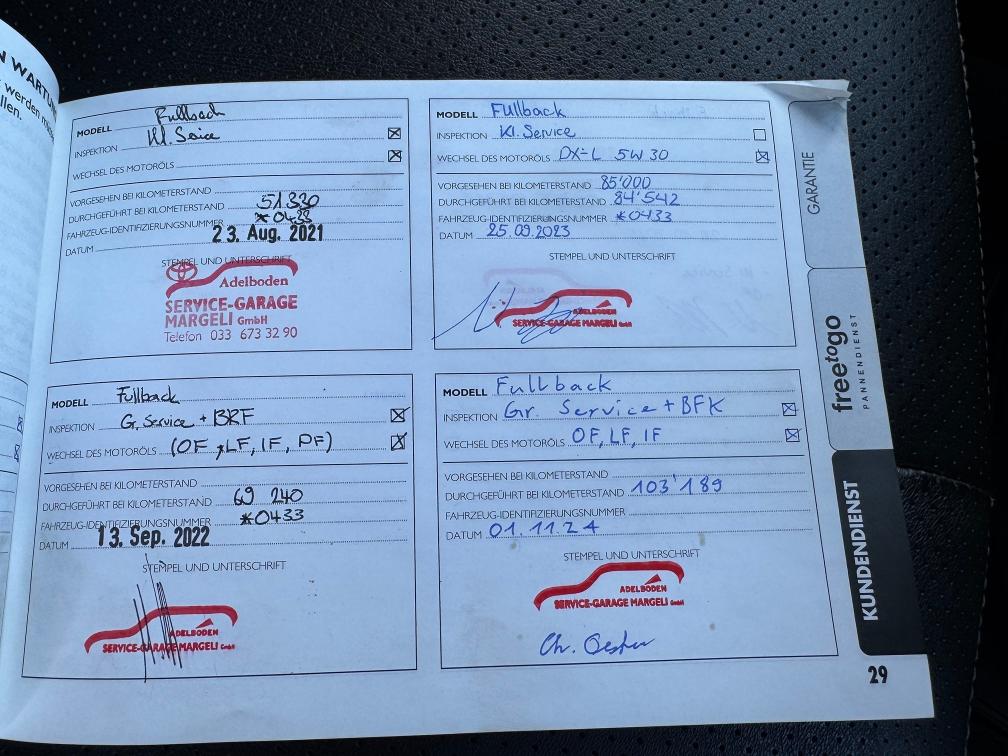 N WARTUN
werden müs
llen.
MODELL Fullback
INSPEKTION Kl. Service
WECHSEL DES MOTORÖLS
VORGESEHEN BEI KILOMETERSTAND
DURCHGEFÜHRT BEI KILOMETERSTAND 51330
FAHRZEUG-IDENTIFIZIERUNGSNUMMER *0433
DATUM 23. Aug. 2021
STEMPEL UND UNTERSCHRIFT
Adelboden
SERVICE-GARAGE
MARGELI GmbH
Telefon 033 673 32 90
MODELL Fullback
INSPEKTION Kl. Service
WECHSEL DES MOTORÖLS DX-L 5W30
VORGESEHEN BEI KILOMETERSTAND 85'000
DURCHGEFÜHRT BEI KILOMETERSTAND 84'542
FAHRZEUG-IDENTIFIZIERUNGSNUMMER *0433
DATUM 25.09.2023
STEMPEL UND UNTERSCHRIFT
ADELBODEN
SERVICE-GARAGE MARGELI GmbH
MODELL Fullback
INSPEKTION G. Service + BRF
WECHSEL DES MOTORÖLS (OF, LF, IF, PF)
VORGESEHEN BEI KILOMETERSTAND
DURCHGEFÜHRT BEI KILOMETERSTAND 69 240
FAHRZEUG-IDENTIFIZIERUNGSNUMMER *0433
DATUM 13. Sep. 2022
STEMPEL UND UNTERSCHRIFT
ADELBODEN
SERVICE-GARAGE MARGELI GmbH
MODELL Fullback
INSPEKTION Gr. Service + BFK
WECHSEL DES MOTORÖLS OF, LF, IF
VORGESEHEN BEI KILOMETERSTAND
DURCHGEFÜHRT BEI KILOMETERSTAND 103'189
FAHRZEUG-IDENTIFIZIERUNGSNUMMER
DATUM 01.11.24
STEMPEL UND UNTERSCHRIFT
ADELBODEN
SERVICE-GARAGE MARGELI GmbH
Ch.
GARANTIE
freetogo
PANNENDIENST
KUNDENDIENST
29